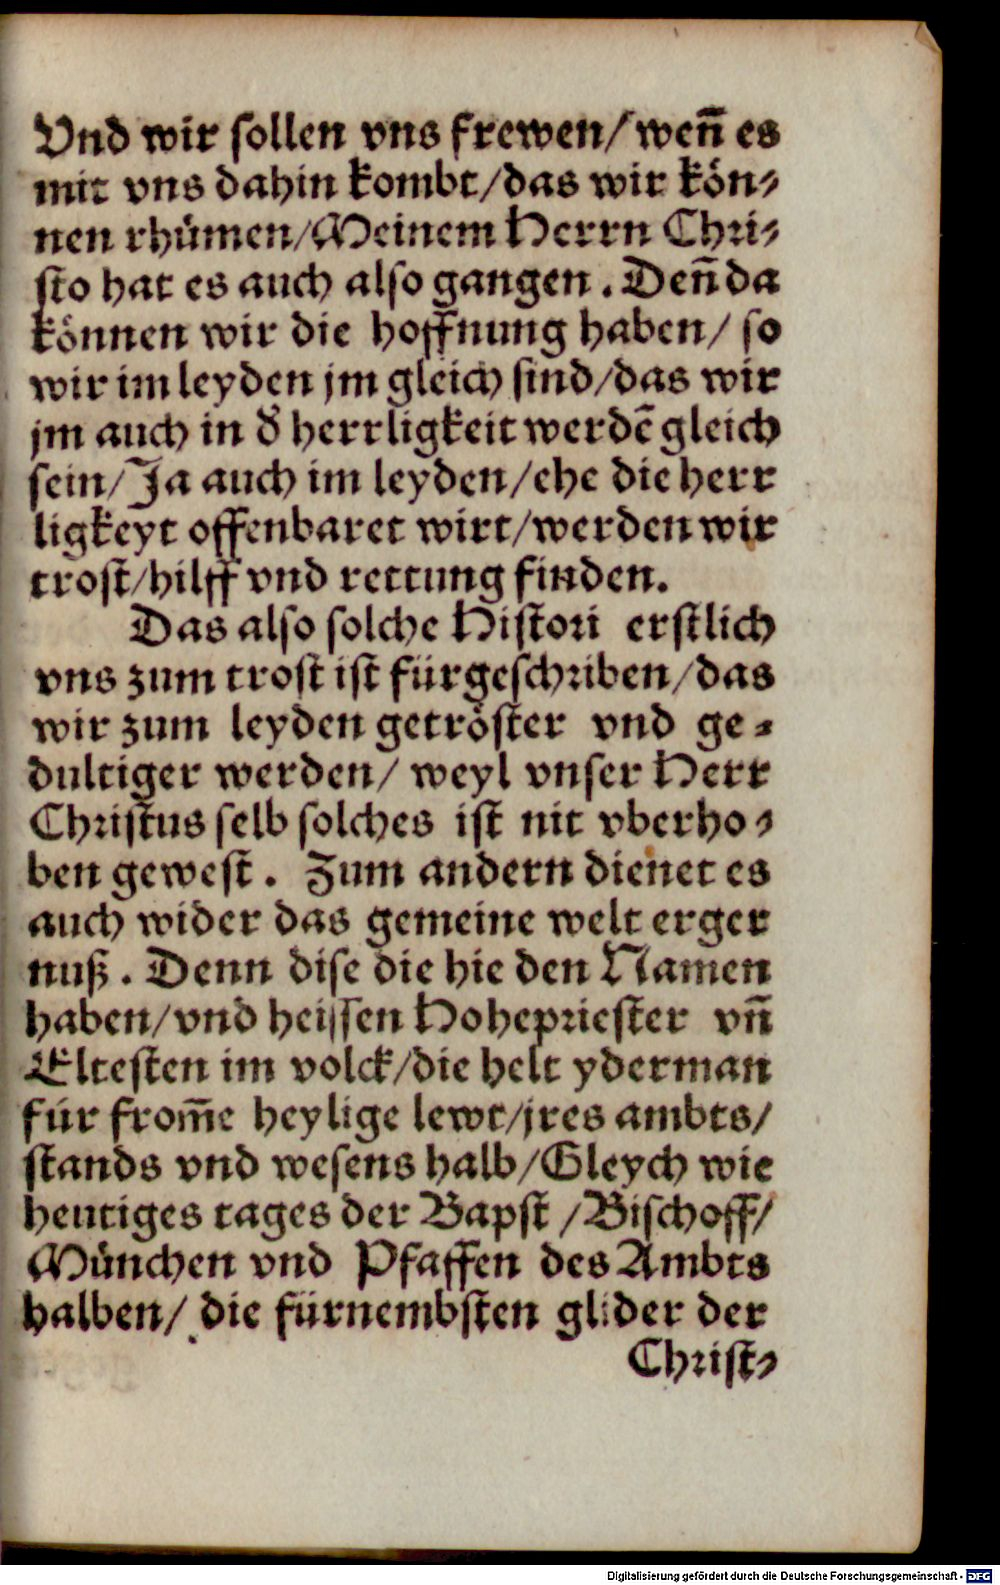 Vnd wir sollen vns frewen/ weñ es
mit vns dahin kombt/das wir kön⸗
nen rhümen/Meinem Herrn Chri⸗
sto hat es auch also gangen. Deñ da
können wir die hoffnung haben/ so
wir im leyden jm gleich sind/das wir
jm auch in d̕ herrligkeit werdē gleich
sein/ Ja auch im leyden/ehe die herr
ligkeyt offenbaret wirt/werden wir
trost/hilff vnd rettung finden.
Das also solche Histori erstlich
vns zum trost ist fürgeschriben/das
wir zum leyden getröster vnd ge⸗
dultiger werden/ weyl vnser Herr
Christus selb solches ist nit vberho⸗
ben gewest. Zum andern dienet es
auch wider das gemeine welt erger
nuß. Denn dise die hie den Namen
haben/vnd heissen Hohepriester vñ
Eltesten im volck/die helt yderman
für from̄e heylige lewt/jres ambts/
stands vnd wesens halb/Gleych wie
heutiges tages der Bapst /Bischoff/
München vnd Pfaffen des Ambts
halben/ die fürnembsten glider der
Christ⸗
Digitalisierung gefördert durch die Deutsche Forschungsgemeinschaft - DFG